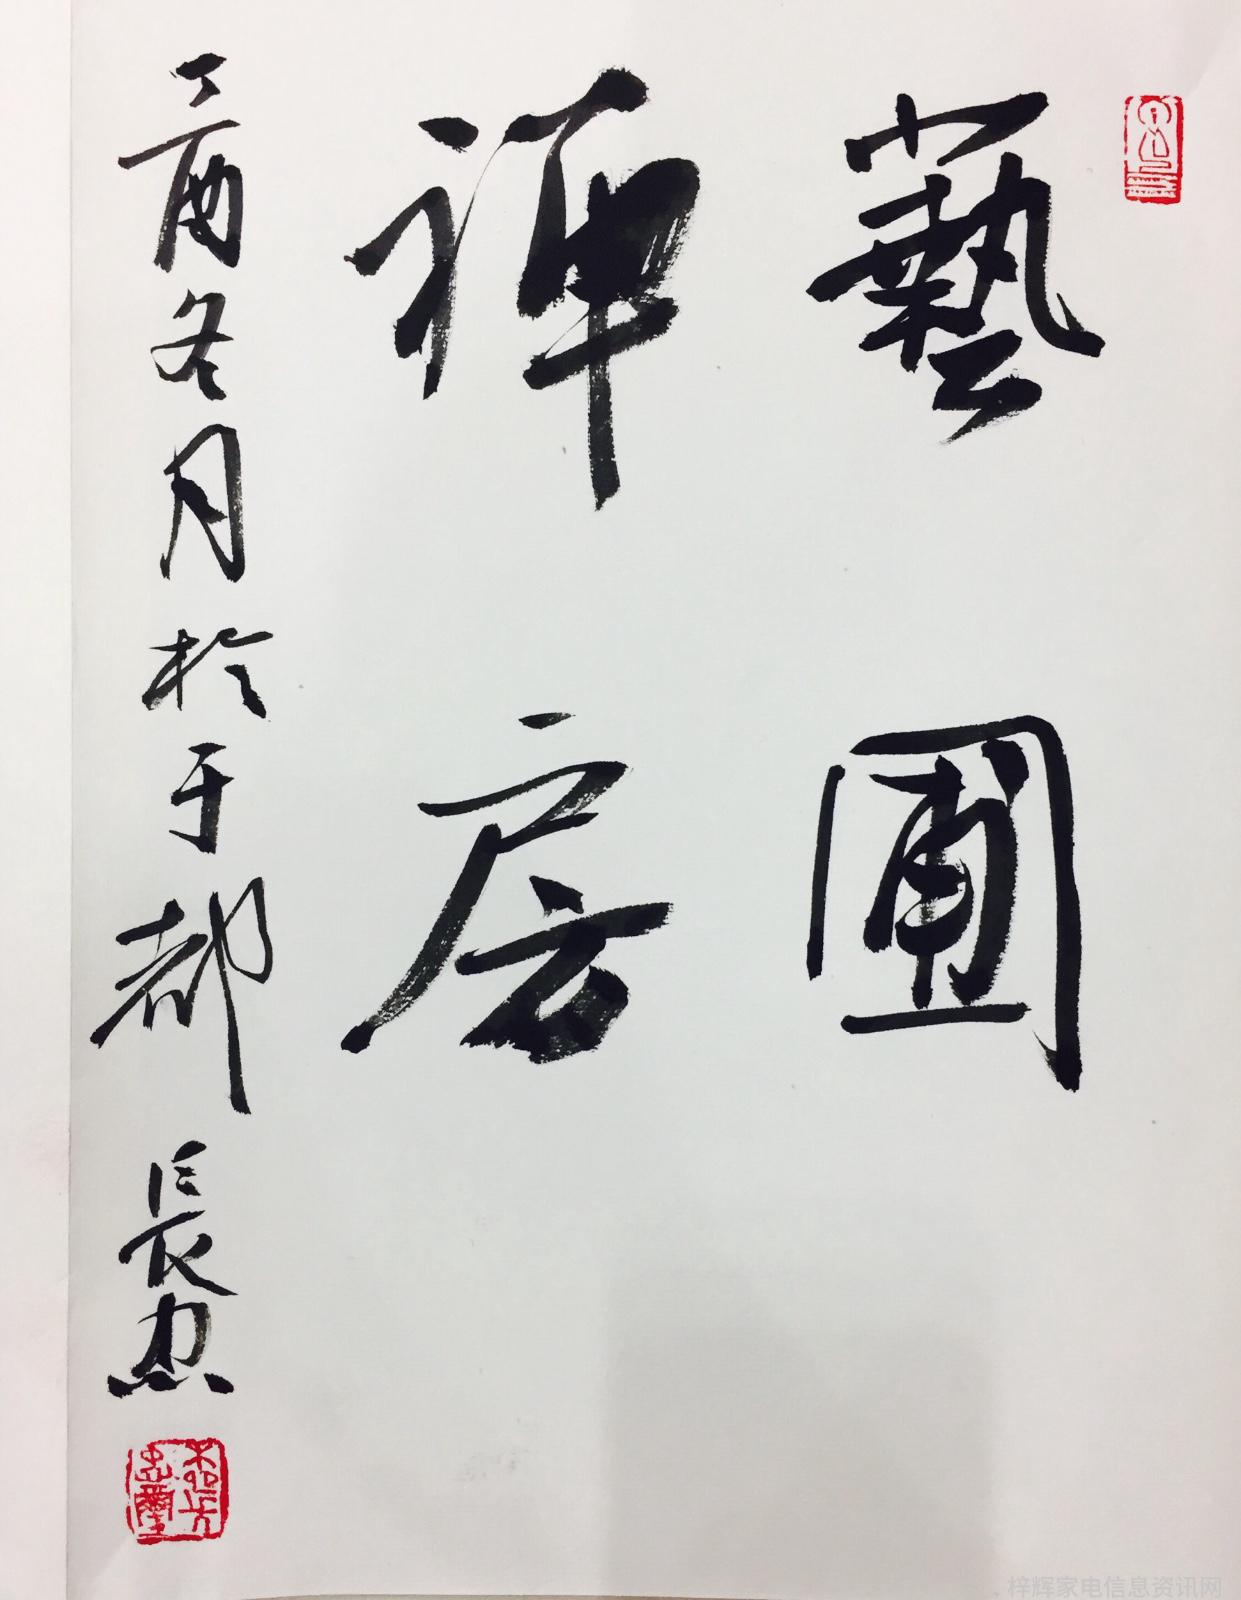 藝圃
禪房
丁酉冬月於于都
長忠
梓辉家电信息资讯网